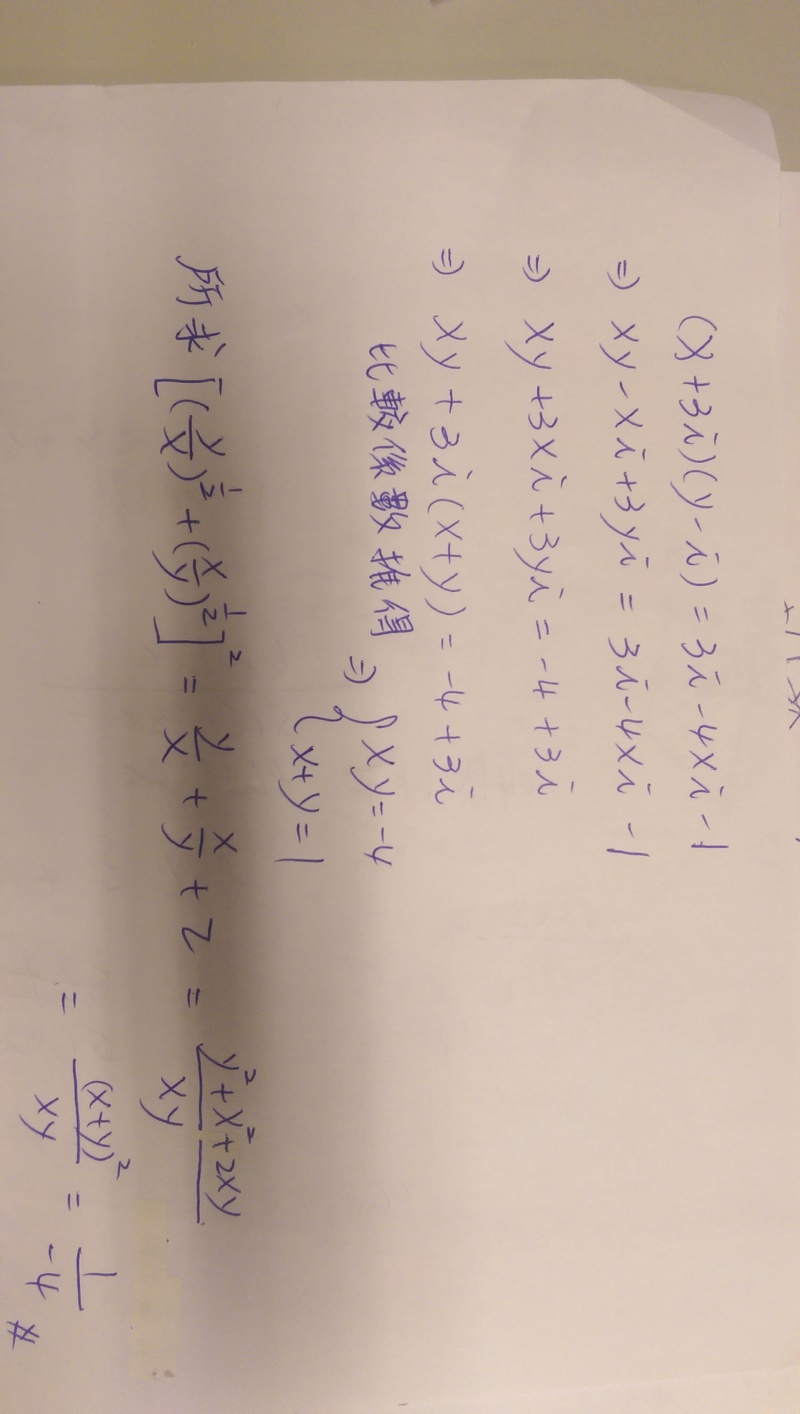 (x+3i)(y-i) = 3i-4xi-1
⇒ xy-xi+3yi = 3i-4xi-1
⇒ xy+3xi+3yi = -4+3i
⇒ xy+3i(x+y) = -4+3i
比較係數推得 ⇒ { xy=-4
x+y=1
所求 [(y/x)^(1/2)+(x/y)^(1/2)]² = y/x + x/y + 2 = (y²+x²+2xy)/xy
= (x+y)²/xy = 1/-4 #